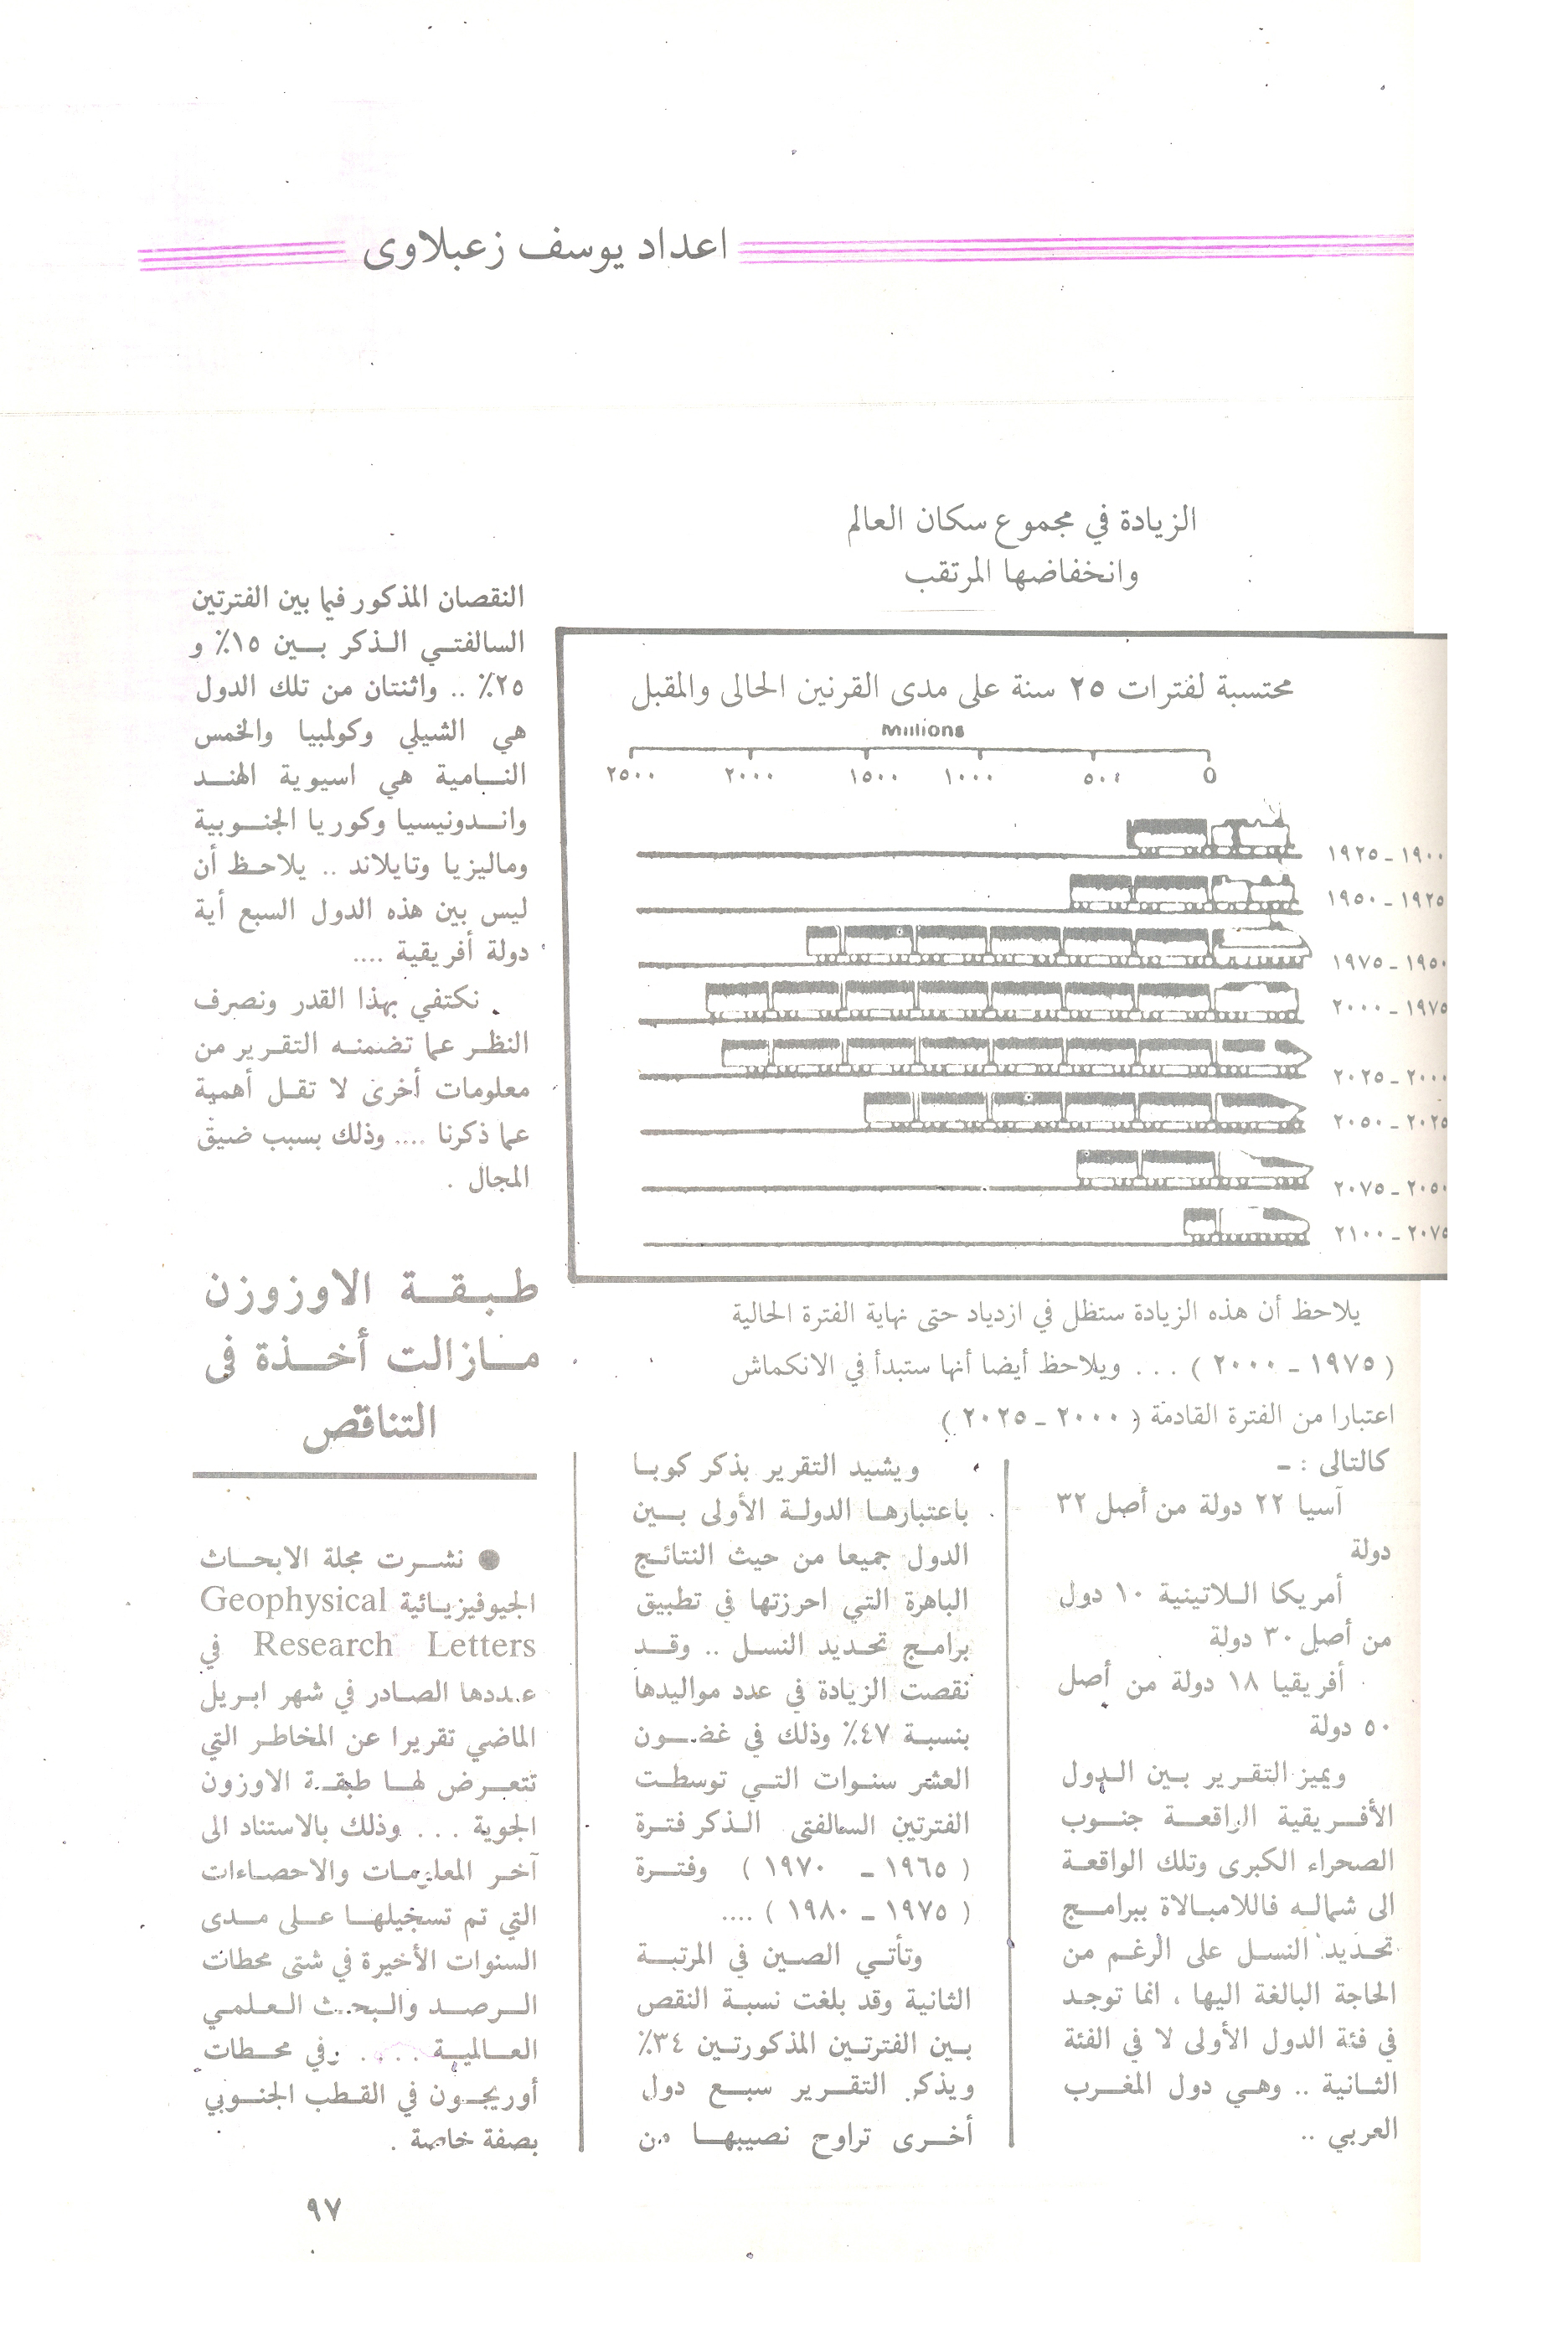 اعداد يوسف زعبلاوى
الزيادة في مجموع سكان العالم
وانخفاضها المرتقب
محتسبة لفترات ٢٥ سنة على مدى القرنين الحالى والمقبل
Millions
٢٥٠٠ ٢٠٠٠ ١٥٠٠ ١٠٠٠ ٥٠٠ 0
١٩٠٠ - ١٩٢٥
١٩٢٥ - ١٩٥٠
١٩٥٠ - ١٩٧٥
١٩٧٥ - ٢٠٠٠
٢٠٠٠ - ٢٠٢٥
٢٠٢٥ - ٢٠٥٠
٢٠٥٠ - ٢٠٧٥
٢٠٧٥ - ٢١٠٠
يلاحظ أن هذه الزيادة ستظل في ازدياد حتى نهاية الفترة الحالية
( ١٩٧٥ - ٢٠٠٠ ) ... ويلاحظ أيضا أنها ستبدأ في الانكماش
اعتبارا من الفترة القادمة ( ٢٠٠٠ - ٢٠٢٥ )
كالتالى : -
آسيا ٢٢ دولة من أصل ٣٢
دولة
أمريكا اللاتينية ١٠ دول
من أصل ٣٠ دولة
أفريقيا ١٨ دولة من أصل
٥٠ دولة
ويميز التقرير بين الدول
الأفريقية الراقعة جنوب
الصحراء الكبرى وتلك الواقعة
الى شماله فاللامبالاة ببرامج
تحديد النسل على الرغم من
الحاجة البالغة اليها ، انما توجد
في فئة الدول الأولى لا في الفئة
الثانية .. وهي دول المغرب
العربي ..
ويشيد التقرير بذكر كوبا
باعتبارها الدولة الأولى بين
الدول جميعا من حيث النتائج
الباهرة التي احرزتها في تطبيق
برامج تحديد النسل .. وقد
نقصت الزيادة في عدد مواليدها
بنسبة ٤٧٪ وذلك في غضون
العشر سنوات التي توسطت
الفترتين السالفتى الذكر فترة
( ١٩٦٥ - ١٩٧٠ ) وفترة
( ١٩٧٥ - ١٩٨٠ ) ....
وتأتي الصين في المرتبة
الثانية وقد بلغت نسبة النقص
بين الفترتين المذكورتين ٣٤٪
ويذكر التقرير سبع دول
أخرى تراوح نصيبها من
النقصان المذكور فيما بين الفترتين
السالفتي الذكر بين ١٥٪ و
٢٥٪ .. واثنتان من تلك الدول
هي الشيلي وكولمبيا والخمس
النامية هي اسيوية الهند
واندونيسيا وكوريا الجنوبية
وماليزيا وتايلاند .. يلاحظ أن
ليس بين هذه الدول السبع أية
دولة أفريقية ....
نكتفي بهذا القدر ونصرف
النظر عما تضمنه التقرير من
معلومات أخرى لا تقل أهمية
عما ذكرنا .... وذلك بسبب ضيق
المجال .
طبقة الاوزوزن
مازالت أخذة فى
التناقص
● نشرت مجلة الابحاث
الجيوفيزيائية Geophysical
Research Letters في
عددها الصادر في شهر ابريل
الماضي تقريرا عن المخاطر التي
تتعرض لها طبقة الاوزون
الجوية ... وذلك بالاستناد الى
آخر المعلومات والاحصاءات
التي تم تسجيلها على مدى
السنوات الأخيرة في شتى محطات
الرصد والبحث العلمي
العالمية .... وفي محطات
أوريجون في القطب الجنوبي
بصفة خاصة .
٩٧